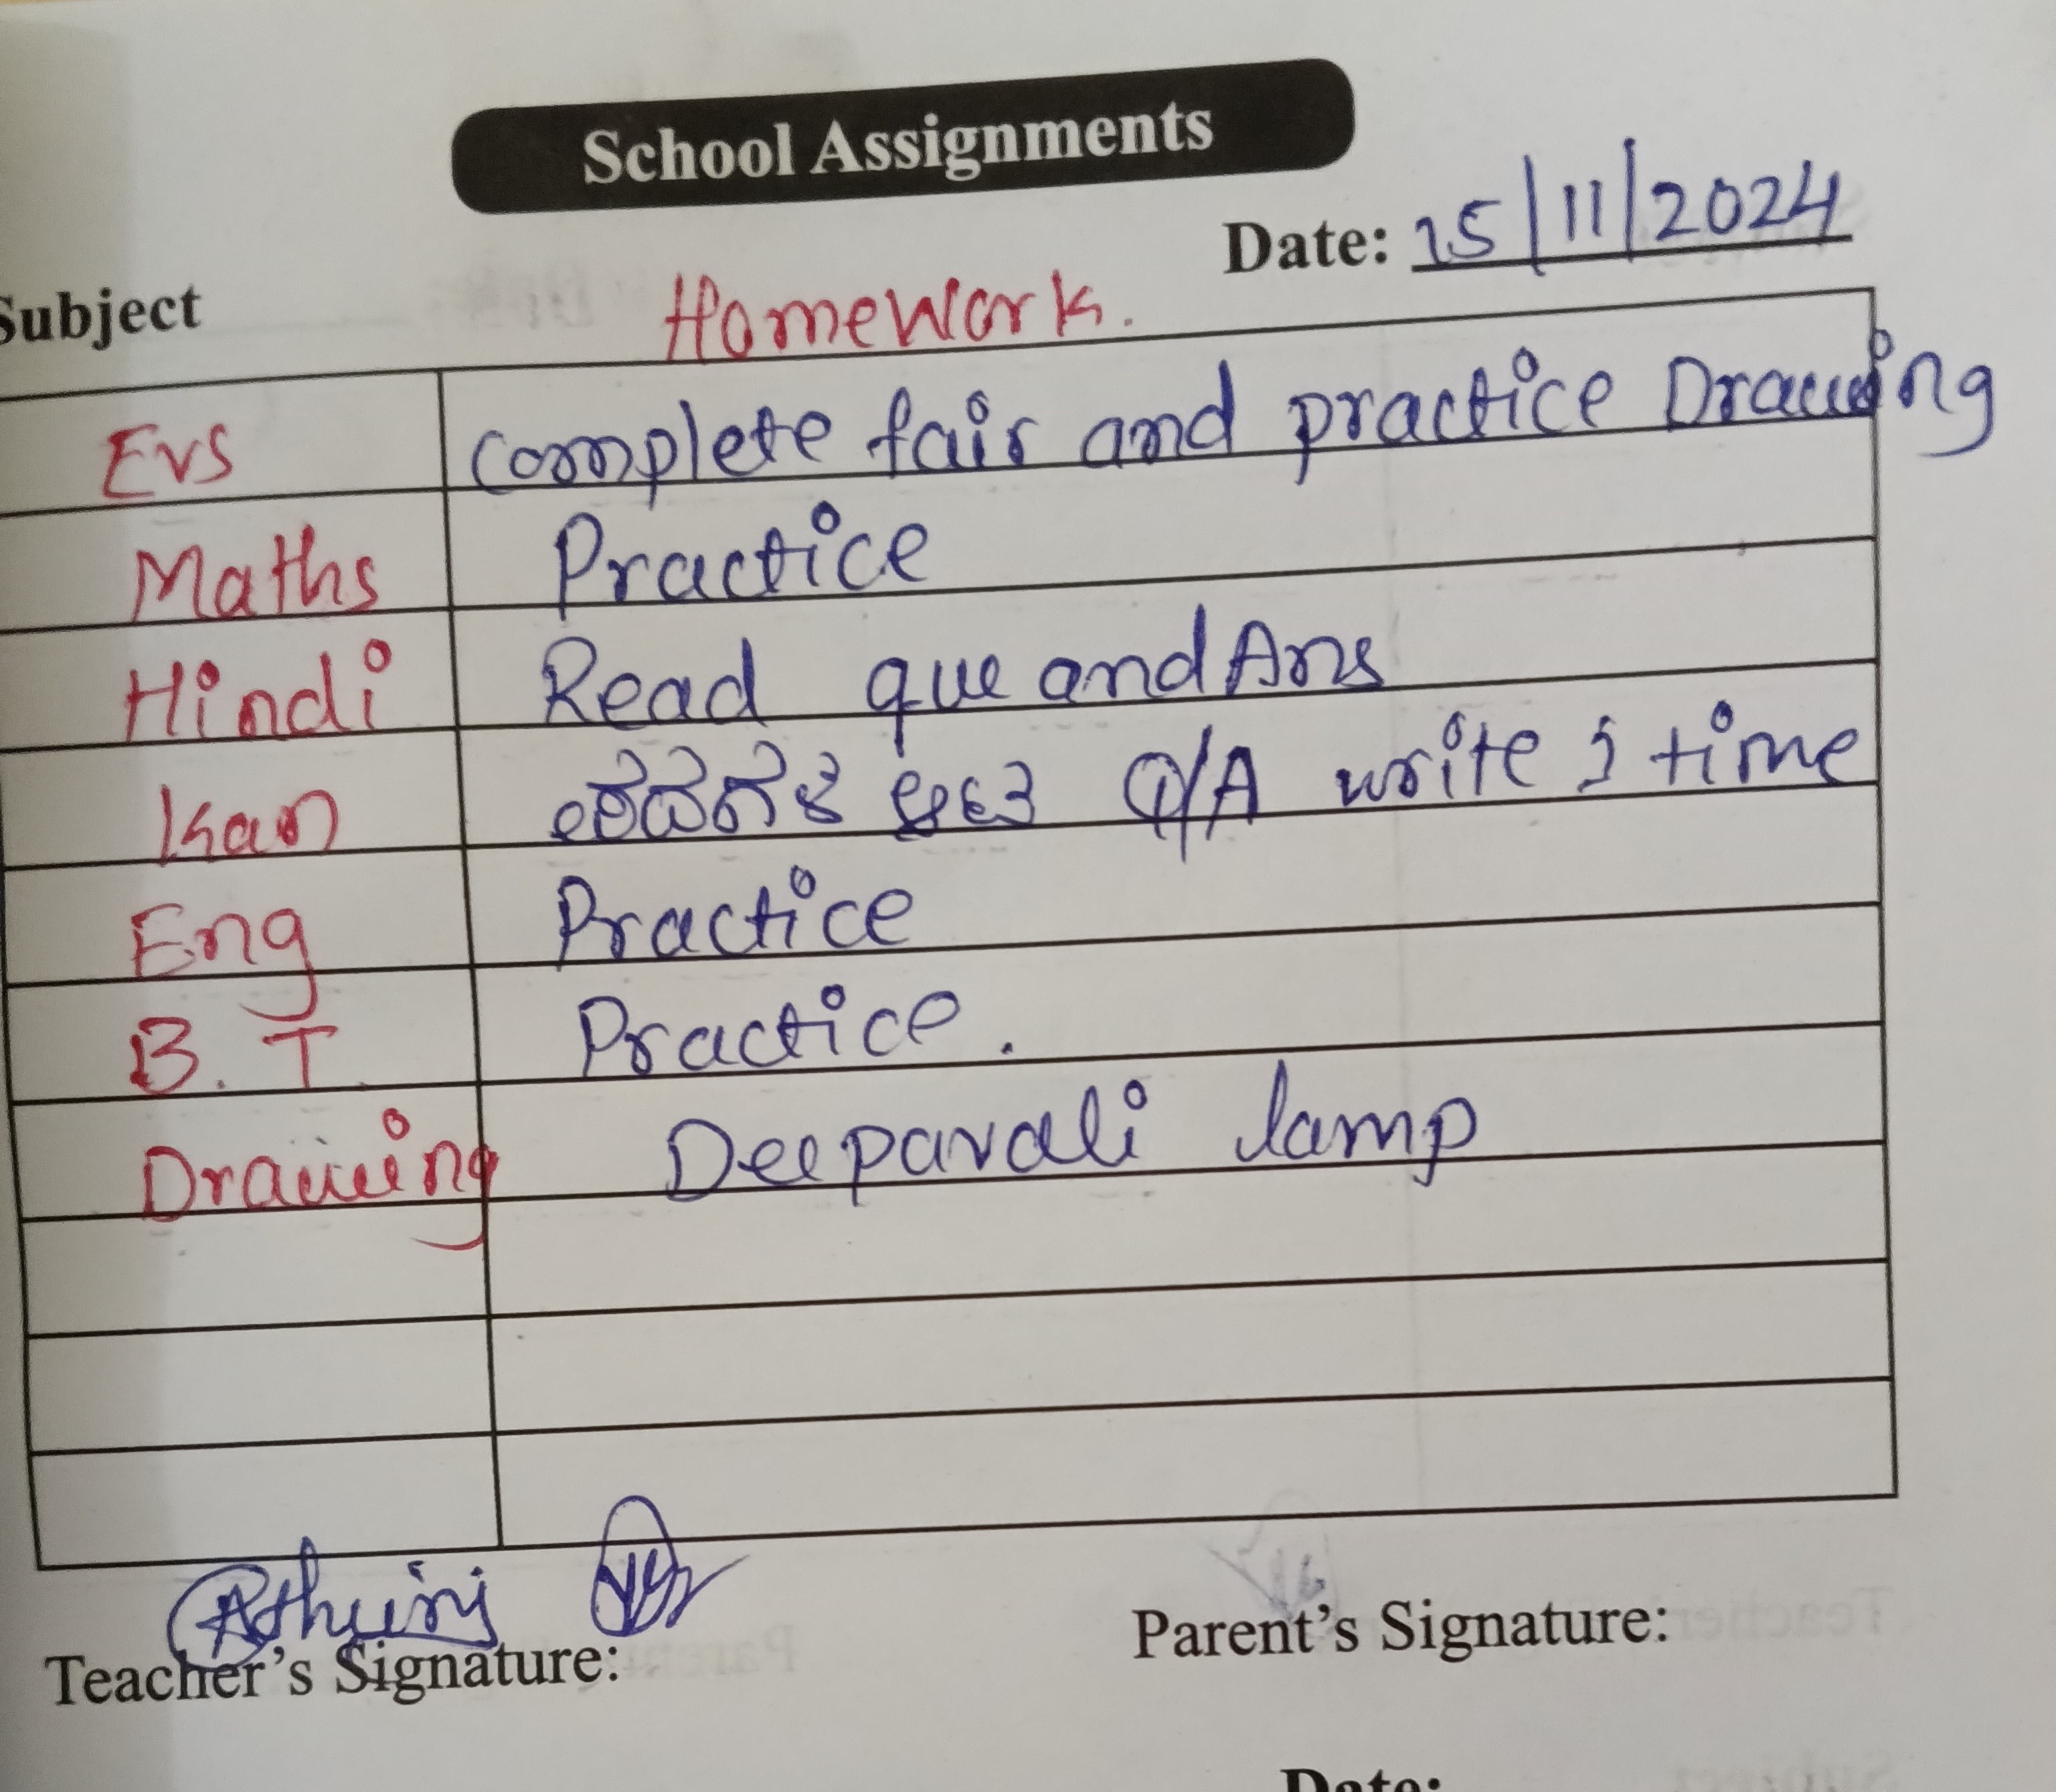 School Assignments
Date: 15/11/2024
Subject Homework.
Evs complete fair and practice Drawing
Maths Practice
Hindi Read que and Ans
Kan Q/A write 1 time
Eng Practice
B. T Practice.
Drawing Deepavali lamp
Teacher's Signature: Parent's Signature:
Date: